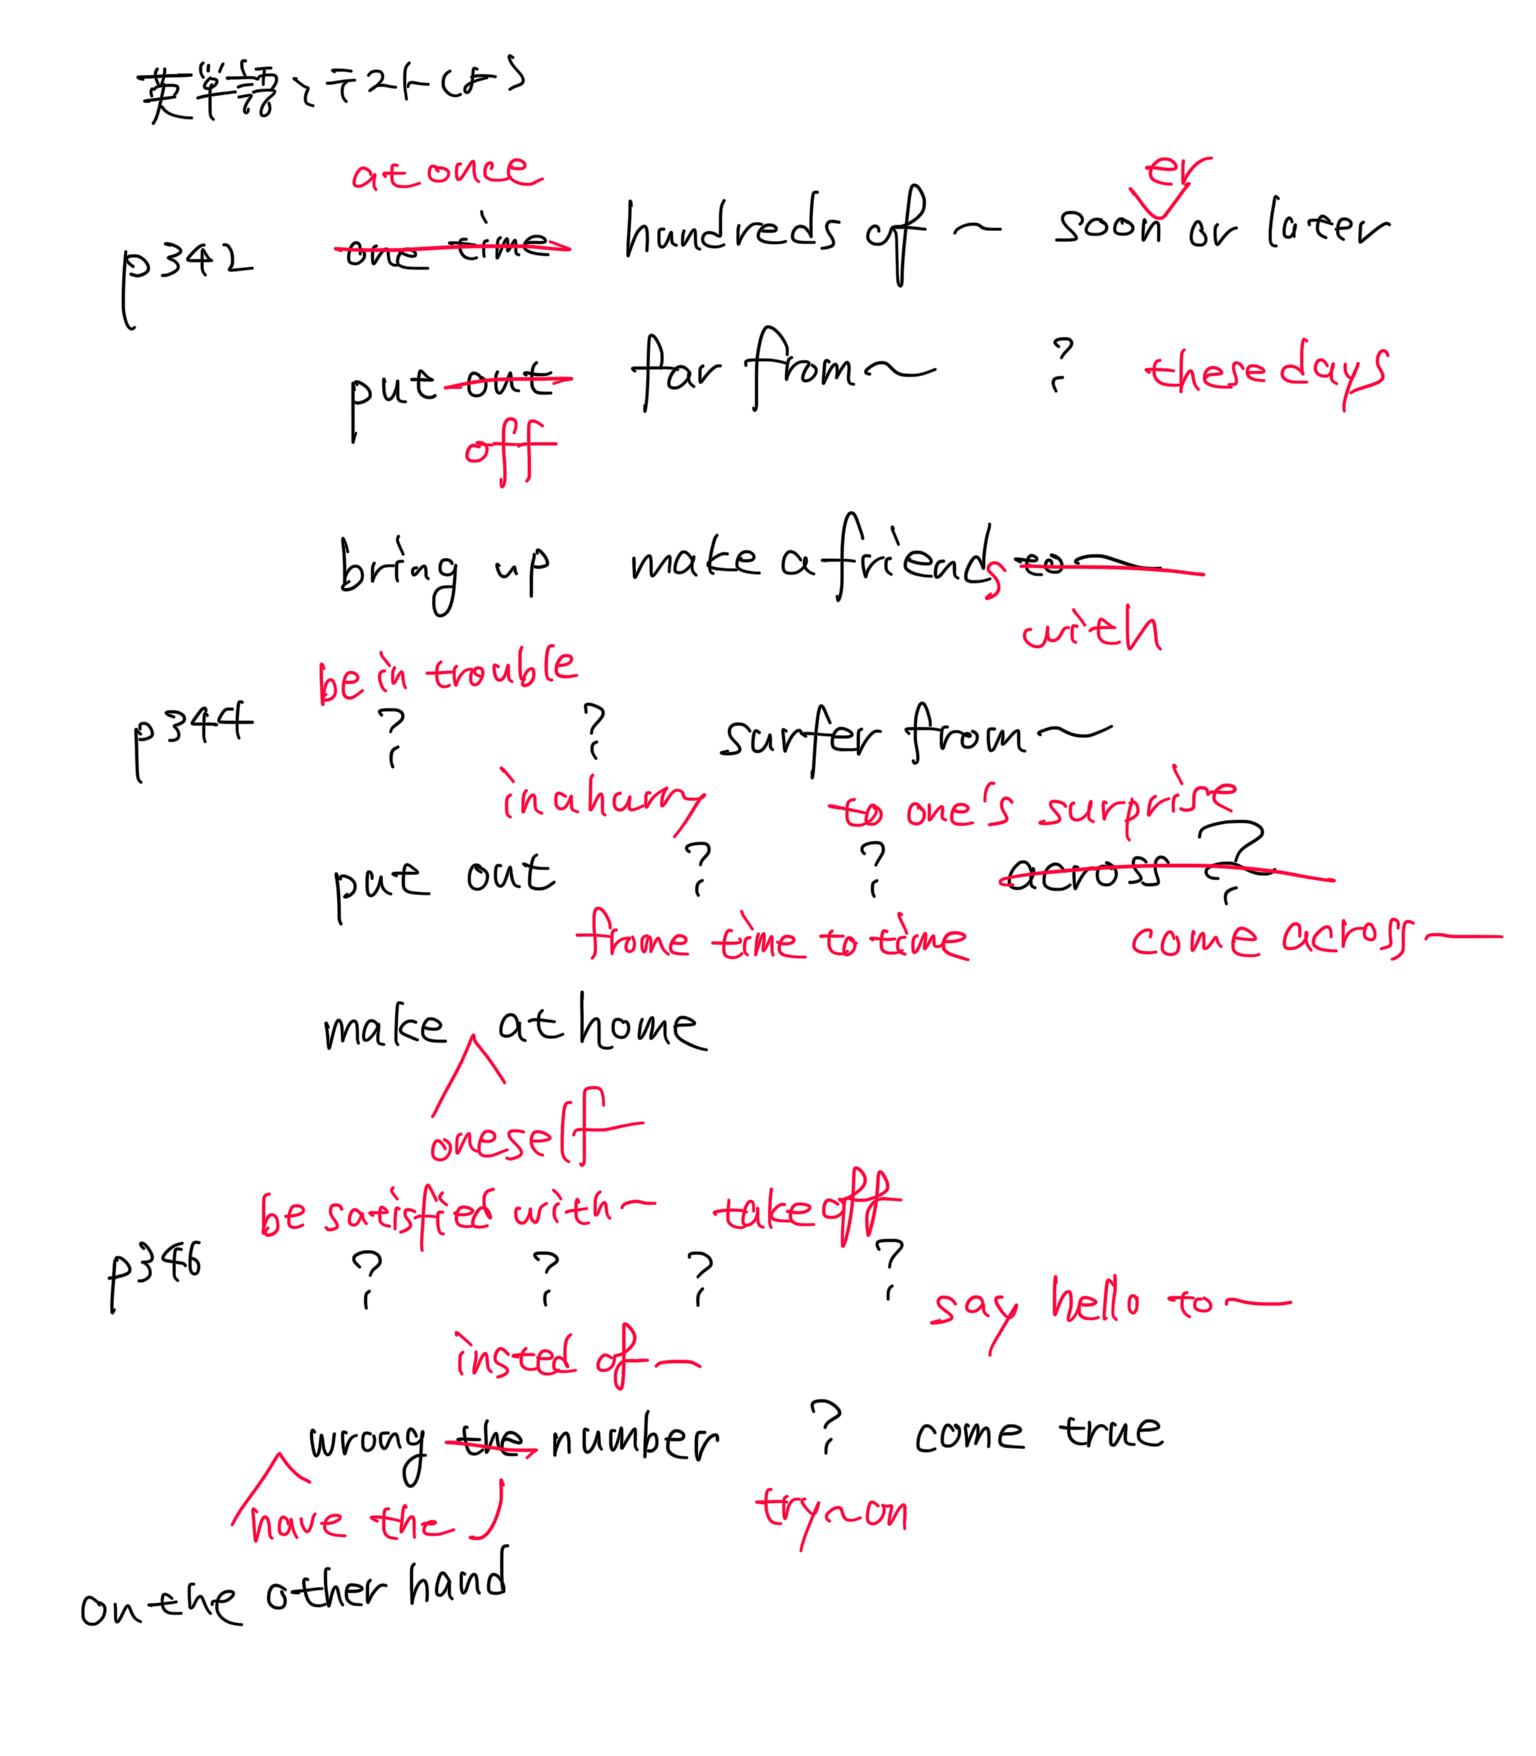 英単語ミニテスト(よ)
at once er
p342 one time hundreds of ~ soon or later
put out far from~ ? these days
off
bring up make a friends to~
with
be in trouble
p344 ? ? surfer from~
in a hurry to one's surprise
put out ? ? across ?
frome time to time come across ~
make at home
oneself
be satisfied with~ take off
p346 ? ? ? ?
say hello to ~
insted of ~
wrong the number ? come true
have the try~on
on the other hand